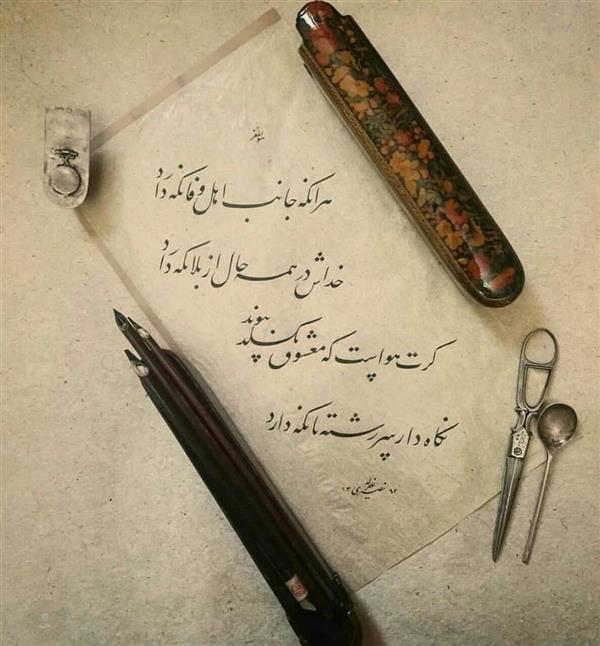 هر آنکه جانب اهل وفا نگه دارد
خداش در همه حال از بلا نگه دارد
گرت هواست که معشوق نگسلد پیوند
نگاه دار سر رشته تا نگه دارد